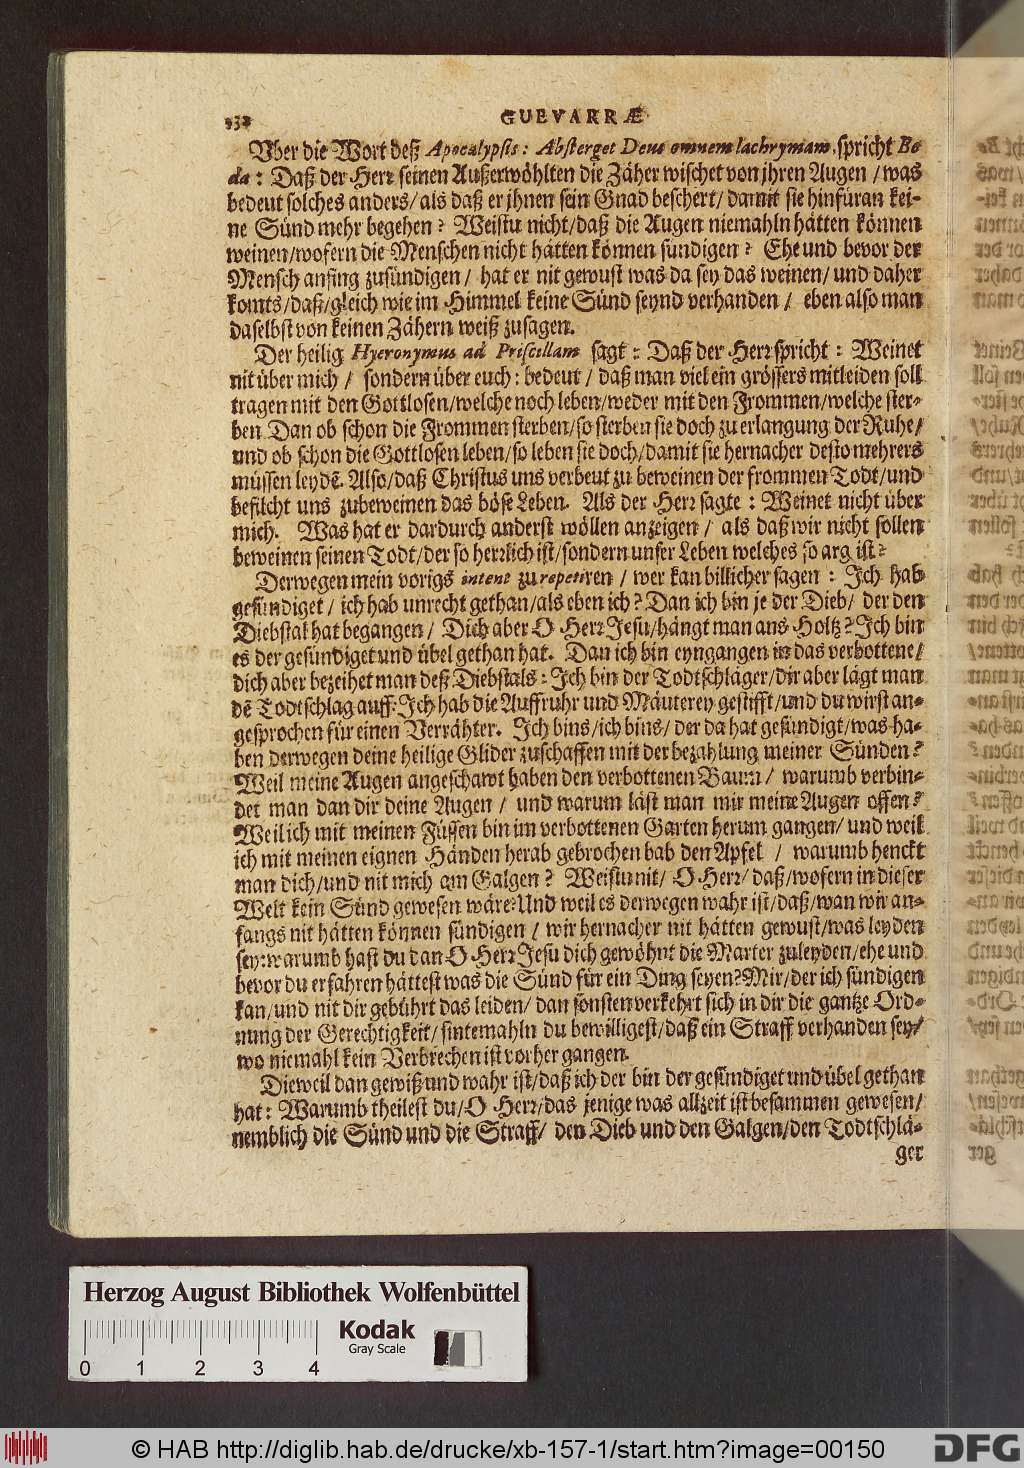 GUEVARRÆ
Vber die Wort deß Apocalypsis: Absterget Deus omnem lachrymam, spricht Be
da: Daß der Herr seinen Außerwöhlten die Zäher wischet von jhren Augen / was
bedeut solches anders/ als daß er jhnen sein Gnad beschert/ damit sie hinfüran kei-
ne Sünd mehr begehen? Weistu nicht/daß die Augen niemahln hätten können
weinen/wofern die Menschen nicht hätten können sündigen? Ehe und bevor der
Mensch anfing zusündigen / hat er nit gewust was da sey das weinen/ und daher
komts/daß/gleich wie im Himmel keine Sünd seynd verhanden / eben also man
daselbst von keinen Zähern weiß zusagen.
Der heilig Hyeronymus ad Priscillam sagt: Daß der Herr spricht: Weinet
nit über mich / sondern über euch: bedeut / daß man viel ein grössers mitleiden soll
tragen mit den Gottlosen/welche noch leben/weder mit den Frommen/welche ster-
ben Dan ob schon die Frommen sterben/so sterben sie doch zu erlangung der Ruhe/
und ob schon die Gottlosen leben/so leben sie doch/damit sie hernacher desto mehrers
müssen leydē. Also/daß Christus uns verbeut zu beweinen der frommen Todt/und
befilcht uns zubeweinen das böse Leben. Als der Herr sagte: Weinet nicht über
mich. Was hat er dardurch anderst wöllen anzeigen / als daß wir nicht sollen
beweinen seinen Todt/der so herrlich ist/sondern unser Leben welches so arg ist?
Derwegen mein vorigs intent zu repetiren / wer kan billicher sagen: Ich hab
gesündiget / ich hab unrecht gethan/als eben ich? Dan ich bin je der Dieb/ der den
Diebstal hat begangen / Dich aber O Herr Jesu/hängt man ans Holtz? Ich bin
es der gesündiget und übel gethan hat. Dan ich bin eyngangen in das verbottene/
dich aber bezeihet man deß Diebstals: Ich bin der Todtschläger/dir aber lägt man
dē Todtschlag auff: Ich hab die Auffruhr und Mäuterey gestifft/und du wirst an-
gesprochen für einen Verrähter. Ich bins/ich bins/ der da hat gesündigt/was ha-
ben derwegen deine heilige Glider zuschaffen mit der bezahlung meiner Sünden?
Weil meine Augen angeschawt haben den verbottenen Baum/ warumb verbin-
det man dan dir deine Augen / und warum läst man mir meine Augen offen?
Weil ich mit meinen Füssen bin im verbottenen Garten herum gangen/ und weil
ich mit meinen eignen Händen herab gebrochen hab den Apfel / warumb henckt
man dich/und nit mich am Galgen? Weistu nit/ O Herr/ daß/wofern in dieser
Welt kein Sünd gewesen wäre: Und weil es derwegen wahr ist/daß/wan wir an-
fangs nit hätten können sündigen / wir hernacher nit hätten gewust/was leyden
sey: warumb hast du dan O Herr Jesu dich gewöhnt die Marter zuleyden/ehe und
bevor du erfahren hättest was die Sünd für ein Ding seyen? Mir/der ich sündigen
kan/und nit dir gebührt das leiden/ dan sonsten verkehrt sich in dir die gantze Ord-
nung der Gerechtigkeit/ sintemahln du bewilligest/daß ein Straff verhanden sey/
wo niemahl kein Verbrechen ist vorher gangen.
Dieweil dan gewiß und wahr ist/daß ich der bin der gesündiget und übel gethan
hat: Warumb theilest du/O Herr/das jenige was allzeit ist besammen gewesen/
nemblich die Sünd und die Straff/ den Dieb und den Galgen/den Todtschlä-
ger
Herzog August Bibliothek Wolfenbüttel
0 1 2 3 4
Kodak
Gray Scale
© HAB http://diglib.hab.de/drucke/xb-157-1/start.htm?image=00150
DFG